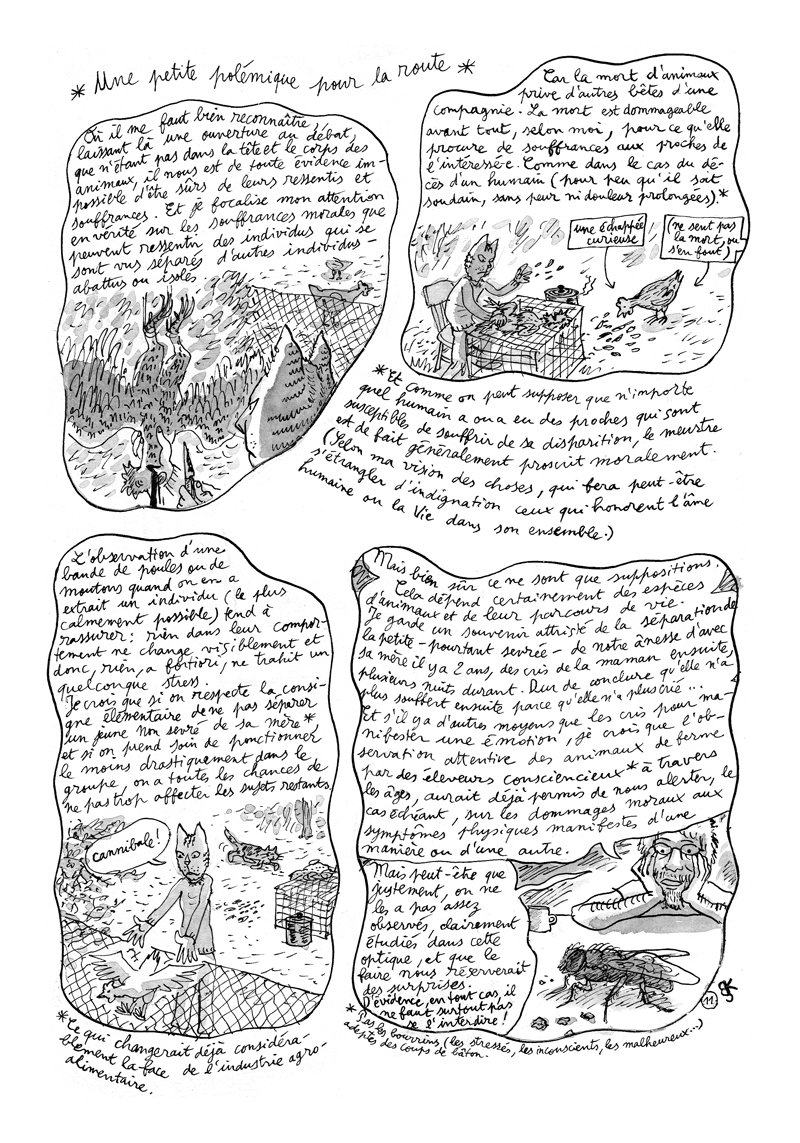 * Une petite polémique pour la route *
Où il me faut bien reconnaître,
laissant là une ouverture au débat,
que n'étant pas dans la tête et le corps des
animaux, il nous est de toute évidence im-
possible d'être sûrs de leurs ressentis et
souffrances. Et je focalise mon attention
en vérité sur les souffrances morales que
peuvent ressentir des individus qui se
sont vus séparés d'autres individus -
abattus ou isolés
Car la mort d'animaux
prive d'autres bêtes d'une
compagnie. La mort est dommageable
avant tout, selon moi, pour ce qu'elle
procure de souffrances aux proches de
l'intéressé·e. Comme dans le cas du dé-
cès d'un humain (pour peu qu'il soit
soudain, sans peur ni douleur prolongées).*
une échappée
curieuse
(ne sent pas
la mort, ou
s'en fout)
*Et comme on peut supposer que n'importe
quel humain a ou a eu des proches qui sont
susceptibles de souffrir de sa disparition, le meurtre
est de fait généralement proscrit moralement.
(Selon ma vision des choses, qui fera peut-être
s'étrangler d'indignation ceux qui honorent l'âme
humaine ou la Vie dans son ensemble.)
L'observation d'une
bande de poules ou de
moutons quand on en a
extrait un individu (le plus
calmement possible) tend à
rassurer : rien dans leur compor-
tement ne change visiblement et
donc, rien, a fortiori, ne trahit un
quelconque stress.
Je crois que si on respecte la consi-
gne élémentaire de ne pas séparer
un jeune non sevré de sa mère*,
et si on prend soin de ponctionner
le moins drastiquement dans le
groupe, on a toutes les chances de
ne pas trop affecter les sujets restants.
cannibale !
*Ce qui changerait déjà considéra-
blement la face de l'industrie agro-
alimentaire.
Mais bien sûr ce ne sont que suppositions.
Cela dépend certainement des espèces
d'animaux et de leur parcours de vie.
Je garde un souvenir attristé de la séparation de
la petite - pourtant sevrée - de notre ânesse d'avec
sa mère il y a 2 ans, des cris de la maman ensuite,
plusieurs nuits durant. Dur de conclure qu'elle n'a
plus souffert ensuite parce qu'elle n'a plus crié...
Et s'il y a d'autres moyens que les cris pour ma-
nifester une émotion, je crois que l'ob-
servation attentive des animaux de ferme
par des éleveurs consciencieux* à travers
les âges, aurait déjà permis de nous alerter, le
cas échéant, sur les dommages moraux aux
symptômes physiques manifestes d'une
manière ou d'une autre.
Mais peut-être que
justement, on ne
les a pas assez
observés, clairement
étudiés dans cette
optique, et que le
faire nous réserverait
des surprises.
D'évidence, en tout cas, il
ne faut surtout pas
se l'interdire !
11
gK
*Pas les bourrins (les stressés, les inconscients, les malheureux...)
adeptes des coups de bâton.